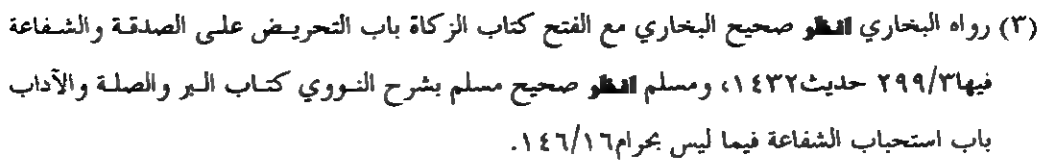 (٣) رواه البخاري انظر صحيح البخاري مع الفتح كتاب الزكاة باب التحريض على الصدقة والشفاعة
فيها٢٩٩/٣ حديث١٤٣٢، ومسلم انظر صحيح مسلم بشرح النووي كتاب البر والصلة والآداب
باب استحباب الشفاعة فيما ليس بحرام١٤٦/١٦.